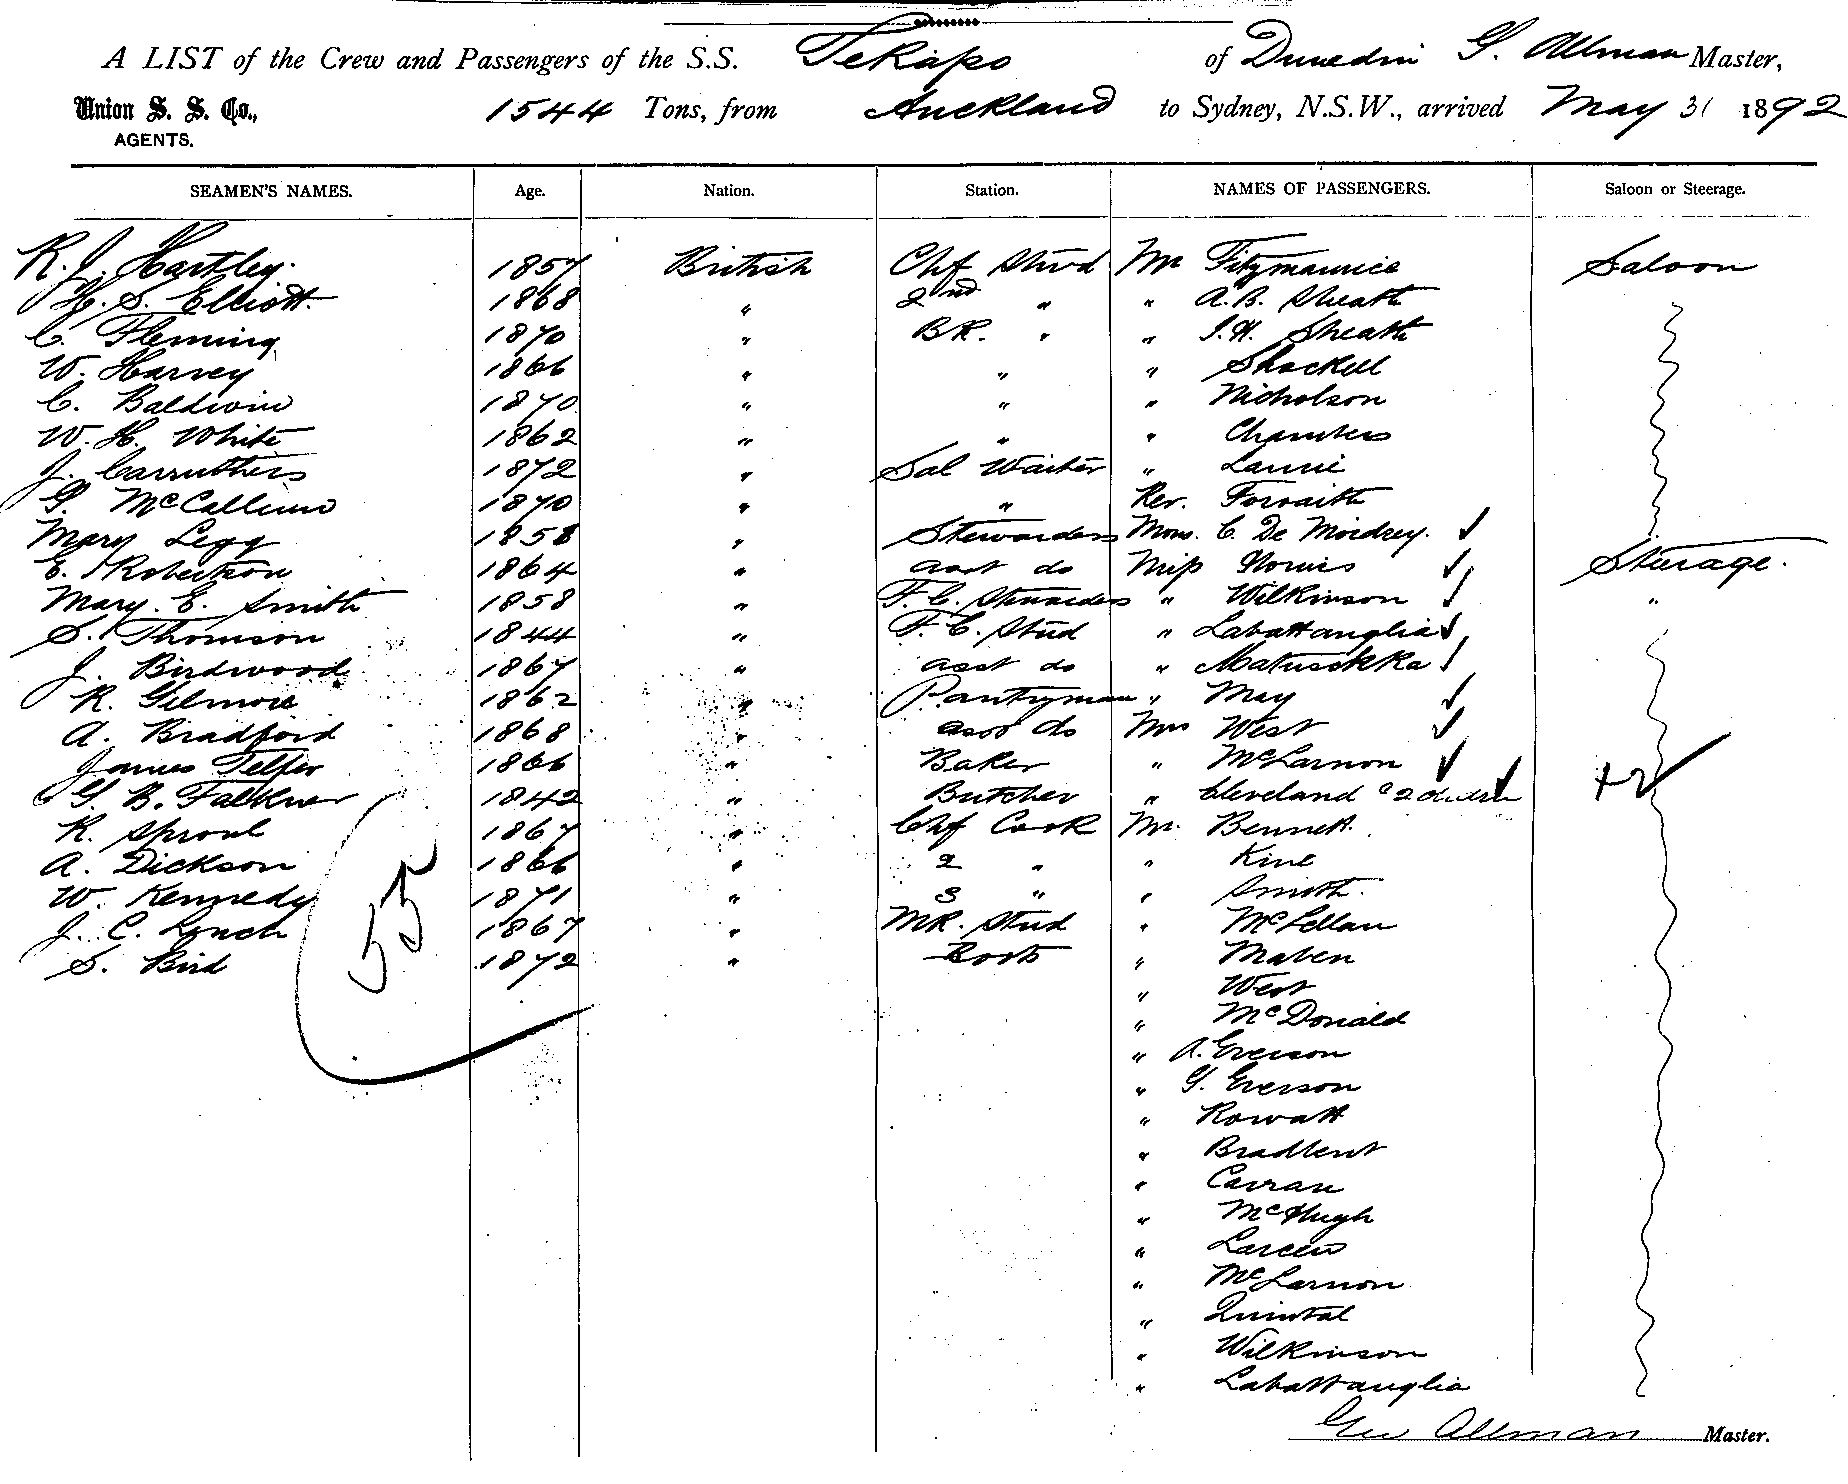 A LIST of the Crew and Passengers of the S.S. Tekapo of Dunedin G. Allman Master,
Union S. S. Co., 1544 Tons, from Auckland to Sydney, N.S.W., arrived May 31 1892
AGENTS.
SEAMEN'S NAMES. Age. Nation. Station. NAMES OF PASSENGERS. Saloon or Steerage.
R. J. Hartley. 1857 British Chf Stwd Mr Fitzmaurice Saloon
H. S. Elliott. 1868 " 2nd " " A. B. Sheath
C. Fleming 1870 " BR. " " J. H. Sheath
W. Harvey 1866 " " " Shackell
C. Baldwin 1870 " " " Nicholson
W. H. White 1862 " " " Chambers
J. Carruthers 1872 " Sal Waiter " Laurie
G. McCallum 1870 " " Rev. Forvaith
Mary Legg 1858 " Stewardess Mons. C. De Mordrey.
E. Robertson 1864 " asst do Miss Norris Steerage.
Mary. E. Smith 1858 " F. C. Stewardess " Wilkinson "
S. Thomson 1844 " F. C. Stud " Labattanglia "
J. Birdwood 1867 " asst do " Matusckka
R. Gilmore 1862 " Pantryman " May
A. Bradford 1868 " asst do Mrs West
James Telfer 1866 " Baker " McLarnon
G. B. Falkner 1842 " Butcher " Cleveland & 2 children
R. Sproul 1867 " Chf Cook Mr. Bennett.
A. Dickson 1866 " 2 " " Kine
W. Kennedy 1871 " 3 " " Smith.
J. C. Lynch 1867 " MR. Stud " McLellan
S. Bird 1872 " Boots " Maben
55
" West
" McDonald
" A. Everson
" G. Everson
" Rowatt
" Bradbent
" Carran
" McHugh
" Larcen
" McLarnon
" Quintal
" Wilkinson
" Labattanglia
Geo Allman Master.